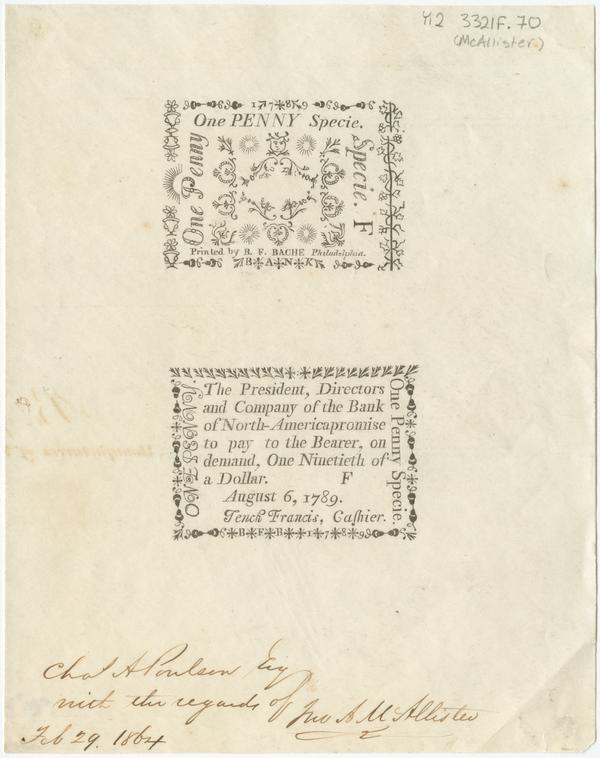 Yi2 3321F.70
(McAllister)
1789
One PENNY Specie.
One Penny
Specie. F
Printed by B. F. BACHE Philadelphia.
B*A*N*K
The President, Directors
and Company of the Bank
of North-Americapromise
to pay to the Bearer, on
demand, One Ninetieth of
a Dollar. F
August 6, 1789.
Tench Francis, Caſhier.
One Penny Specie.
B*F*B**1*7*8*9
Chas A Poulson Esq
with the regards of Jno A McAllister
Feb 29. 1864